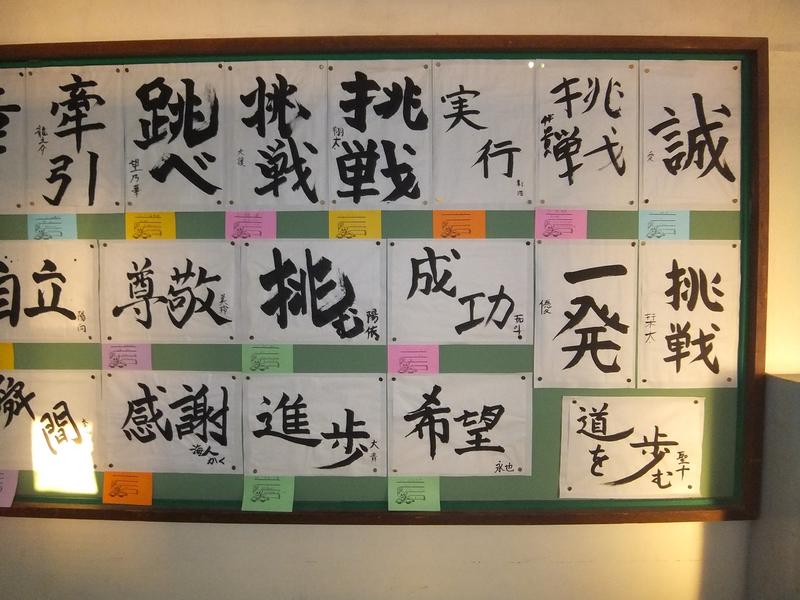 牽引
跳べ
望乃華
挑戦
大護
挑戦
翔太
実行
挑戦
誠
自立
陽向
尊敬
美玲
挑む
陽脩
成功
拓斗
一発
優
挑戦
栞大
瞬間
感謝
海人
かく
進歩
大青
希望
永也
道を歩む
聖十